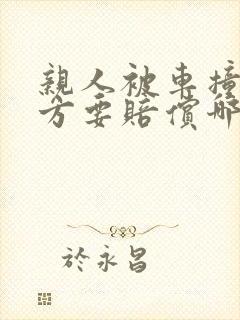 親人被車撞
方要賠償哪
於永昌